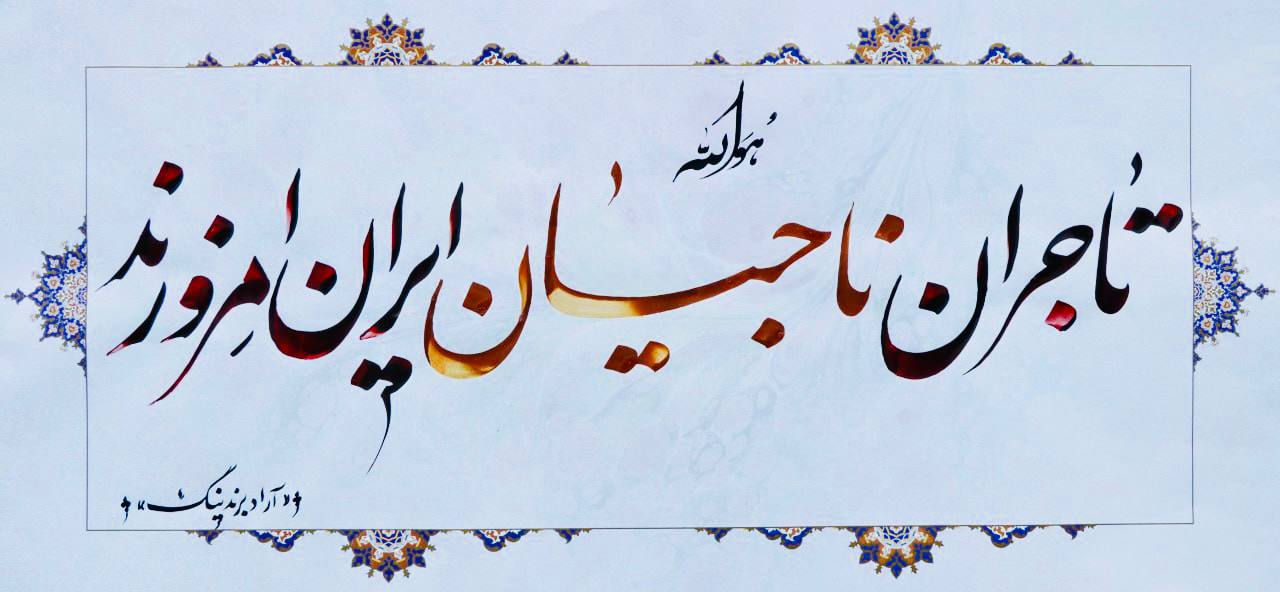 هُوَالله
تاجران ناجیان ایران امروزند
«آراد برندینگ»